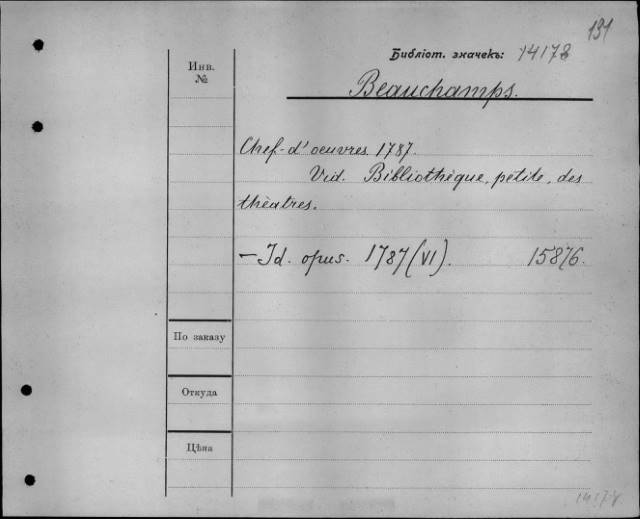 131
Библіот. значекъ: 14178
Инв.
№
Beauchamps.
Chef-d'oeuvres 1787.
Vid. Bibliothèque, petite, des
théatres.
- Id. opus. 1787 (VI). 15876.
По заказу
Откуда
Цѣна